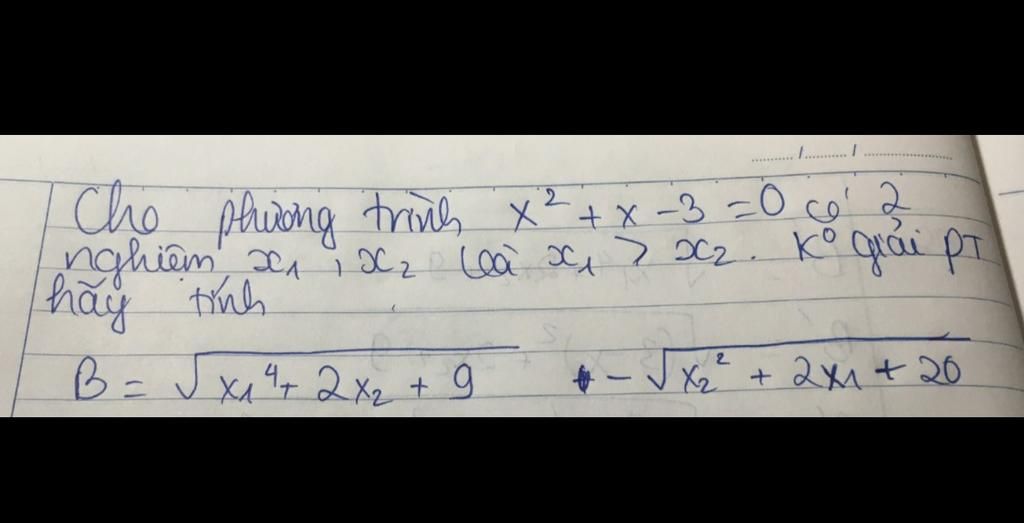 Cho phương trình x² + x - 3 = 0 có 2
nghiệm x₁, x₂ và x₁ > x₂. Kº giải PT
hãy tính
B = √(x₁⁴ + 2x₂ + 9) - √(x₂² + 2x₁ + 20)